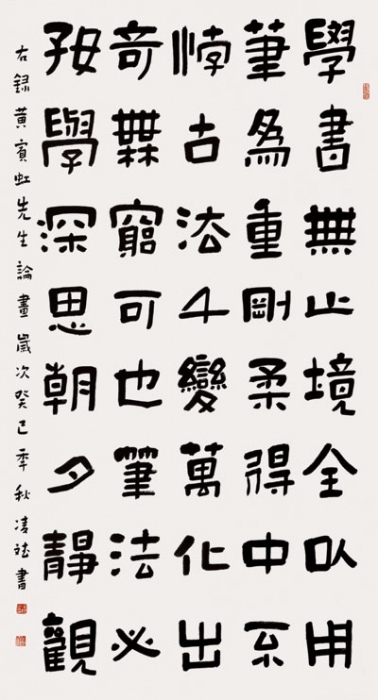 學書無止境全以用
筆為重剛柔得中不
悖古法千變萬化出
奇橆窮可也筆法必
孜學深思朝夕靜觀
右錄黃賓虹先生論畫歲次癸巳季秋凌書